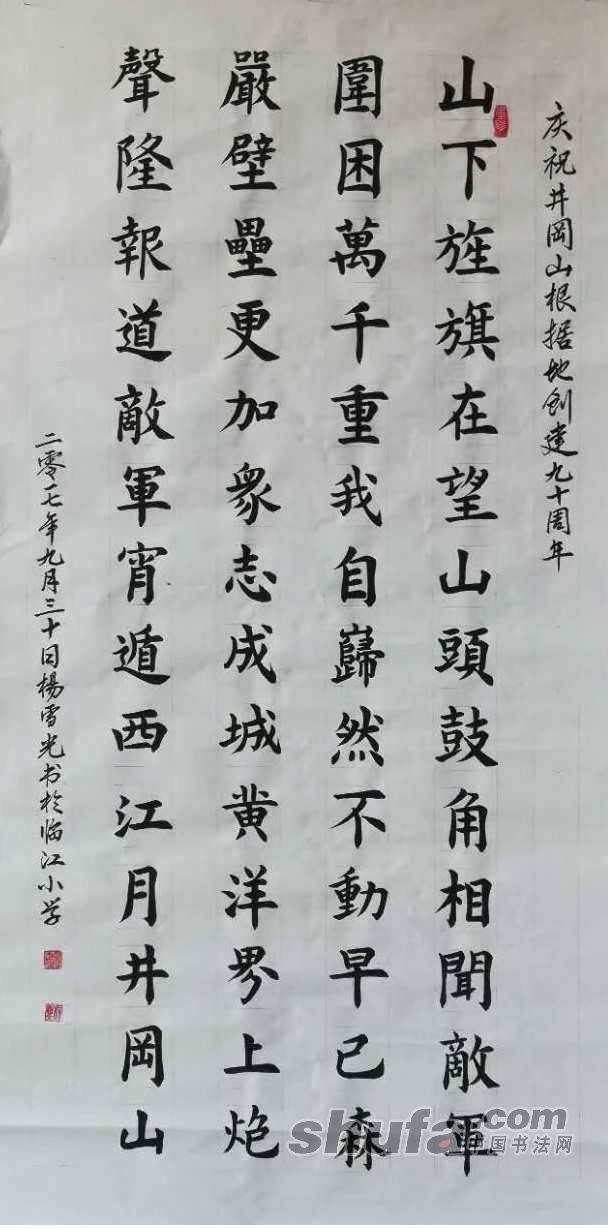 庆祝井岡山根据地创建九十周年
山下旌旗在望山頭鼓角相聞敵軍
圍困萬千重我自巋然不動早已森
嚴壁壘更加衆志成城黄洋界上炮
聲隆報道敵軍宵遁西江月井岡山
二零一七年九月三十日楊雪光书於临江小学
shufa.com
中国书法网